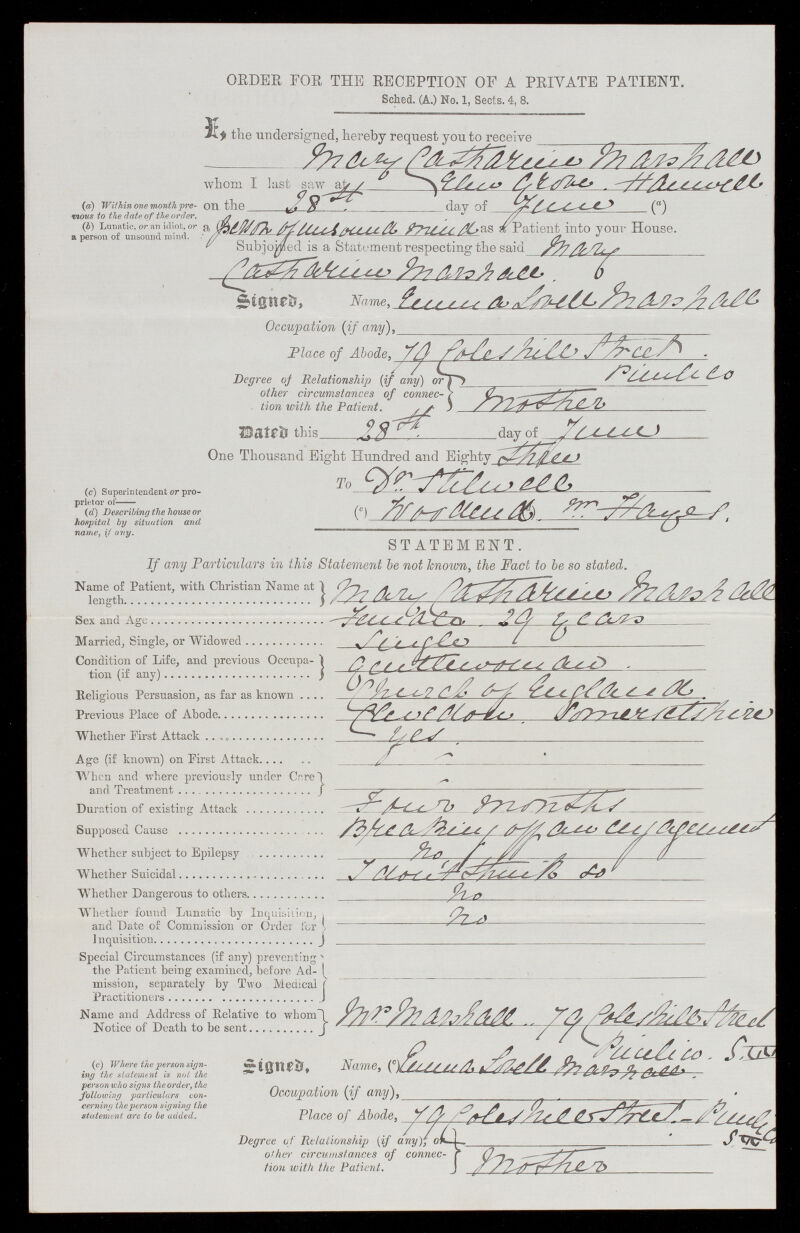 ORDER FOR THE RECEPTION OF A PRIVATE PATIENT.
Sched. (A.) No. 1, Sects. 4, 8.
I, the undersigned, hereby request you to receive
Mary Catharine Marshall
whom I last saw at Elm Grove. Hanwell
(a) Within one month pre-
vious to the date of the order.
(b) Lunatic, or an idiot, or
a person of unsound mind.
on the 28th day of June (a)
a person of unsound mind as a Patient into your House.
Subjoined is a Statement respecting the said Mary
Catharine Marshall.
Signed, Name, Emma Lovell Marshall
Occupation (if any),
Place of Abode, 79 Coleshill Street.
Pimlico
Degree of Relationship (if any) or
other circumstances of connec-
tion with the Patient. Mother
Dated this 28th. day of June
One Thousand Eight Hundred and Eighty three
To Dr. Stilwell
(c) Superintendent or pro-
prietor of——
(d) Describing the house or
hospital by situation and
name, if any.
(c) Woodend. nr Hayes.
STATEMENT.
If any Particulars in this Statement be not known, the Fact to be so stated.
Name of Patient, with Christian Name at
length. Mary Catharine Marshall
Sex and Age Female. 29 years
Married, Single, or Widowed Single
Condition of Life, and previous Occupa-
tion (if any) Gentlewoman.
Religious Persuasion, as far as known Church of England.
Previous Place of Abode Clevedon. Somersetshire
Whether First Attack yes.
Age (if known) on First Attack
When and where previously under Care
and Treatment
Duration of existing Attack Four months
Supposed Cause Breaking off an engagement
Whether subject to Epilepsy no
Whether Suicidal I don't think so
Whether Dangerous to others no
Whether found Lunatic by Inquisition,
and Date of Commission or Order for
Inquisition no
Special Circumstances (if any) preventing
the Patient being examined, before Ad-
mission, separately by Two Medical
Practitioners
Name and Address of Relative to whom
Notice of Death to be sent Mrs Marshall.. 79 Coleshill Street
Pimlico. S.W
(e) Where the person sign-
ing the statement is not the
person who signs the order, the
following particulars con-
cerning the person signing the
statement are to be added.
Signed, Name, (e) Emma Lovell Marshall.
Occupation (if any),
Place of Abode, 79 Coleshill Street - Pimlico
S W
Degree of Relationship (if any), or
other circumstances of connec-
tion with the Patient. Mother